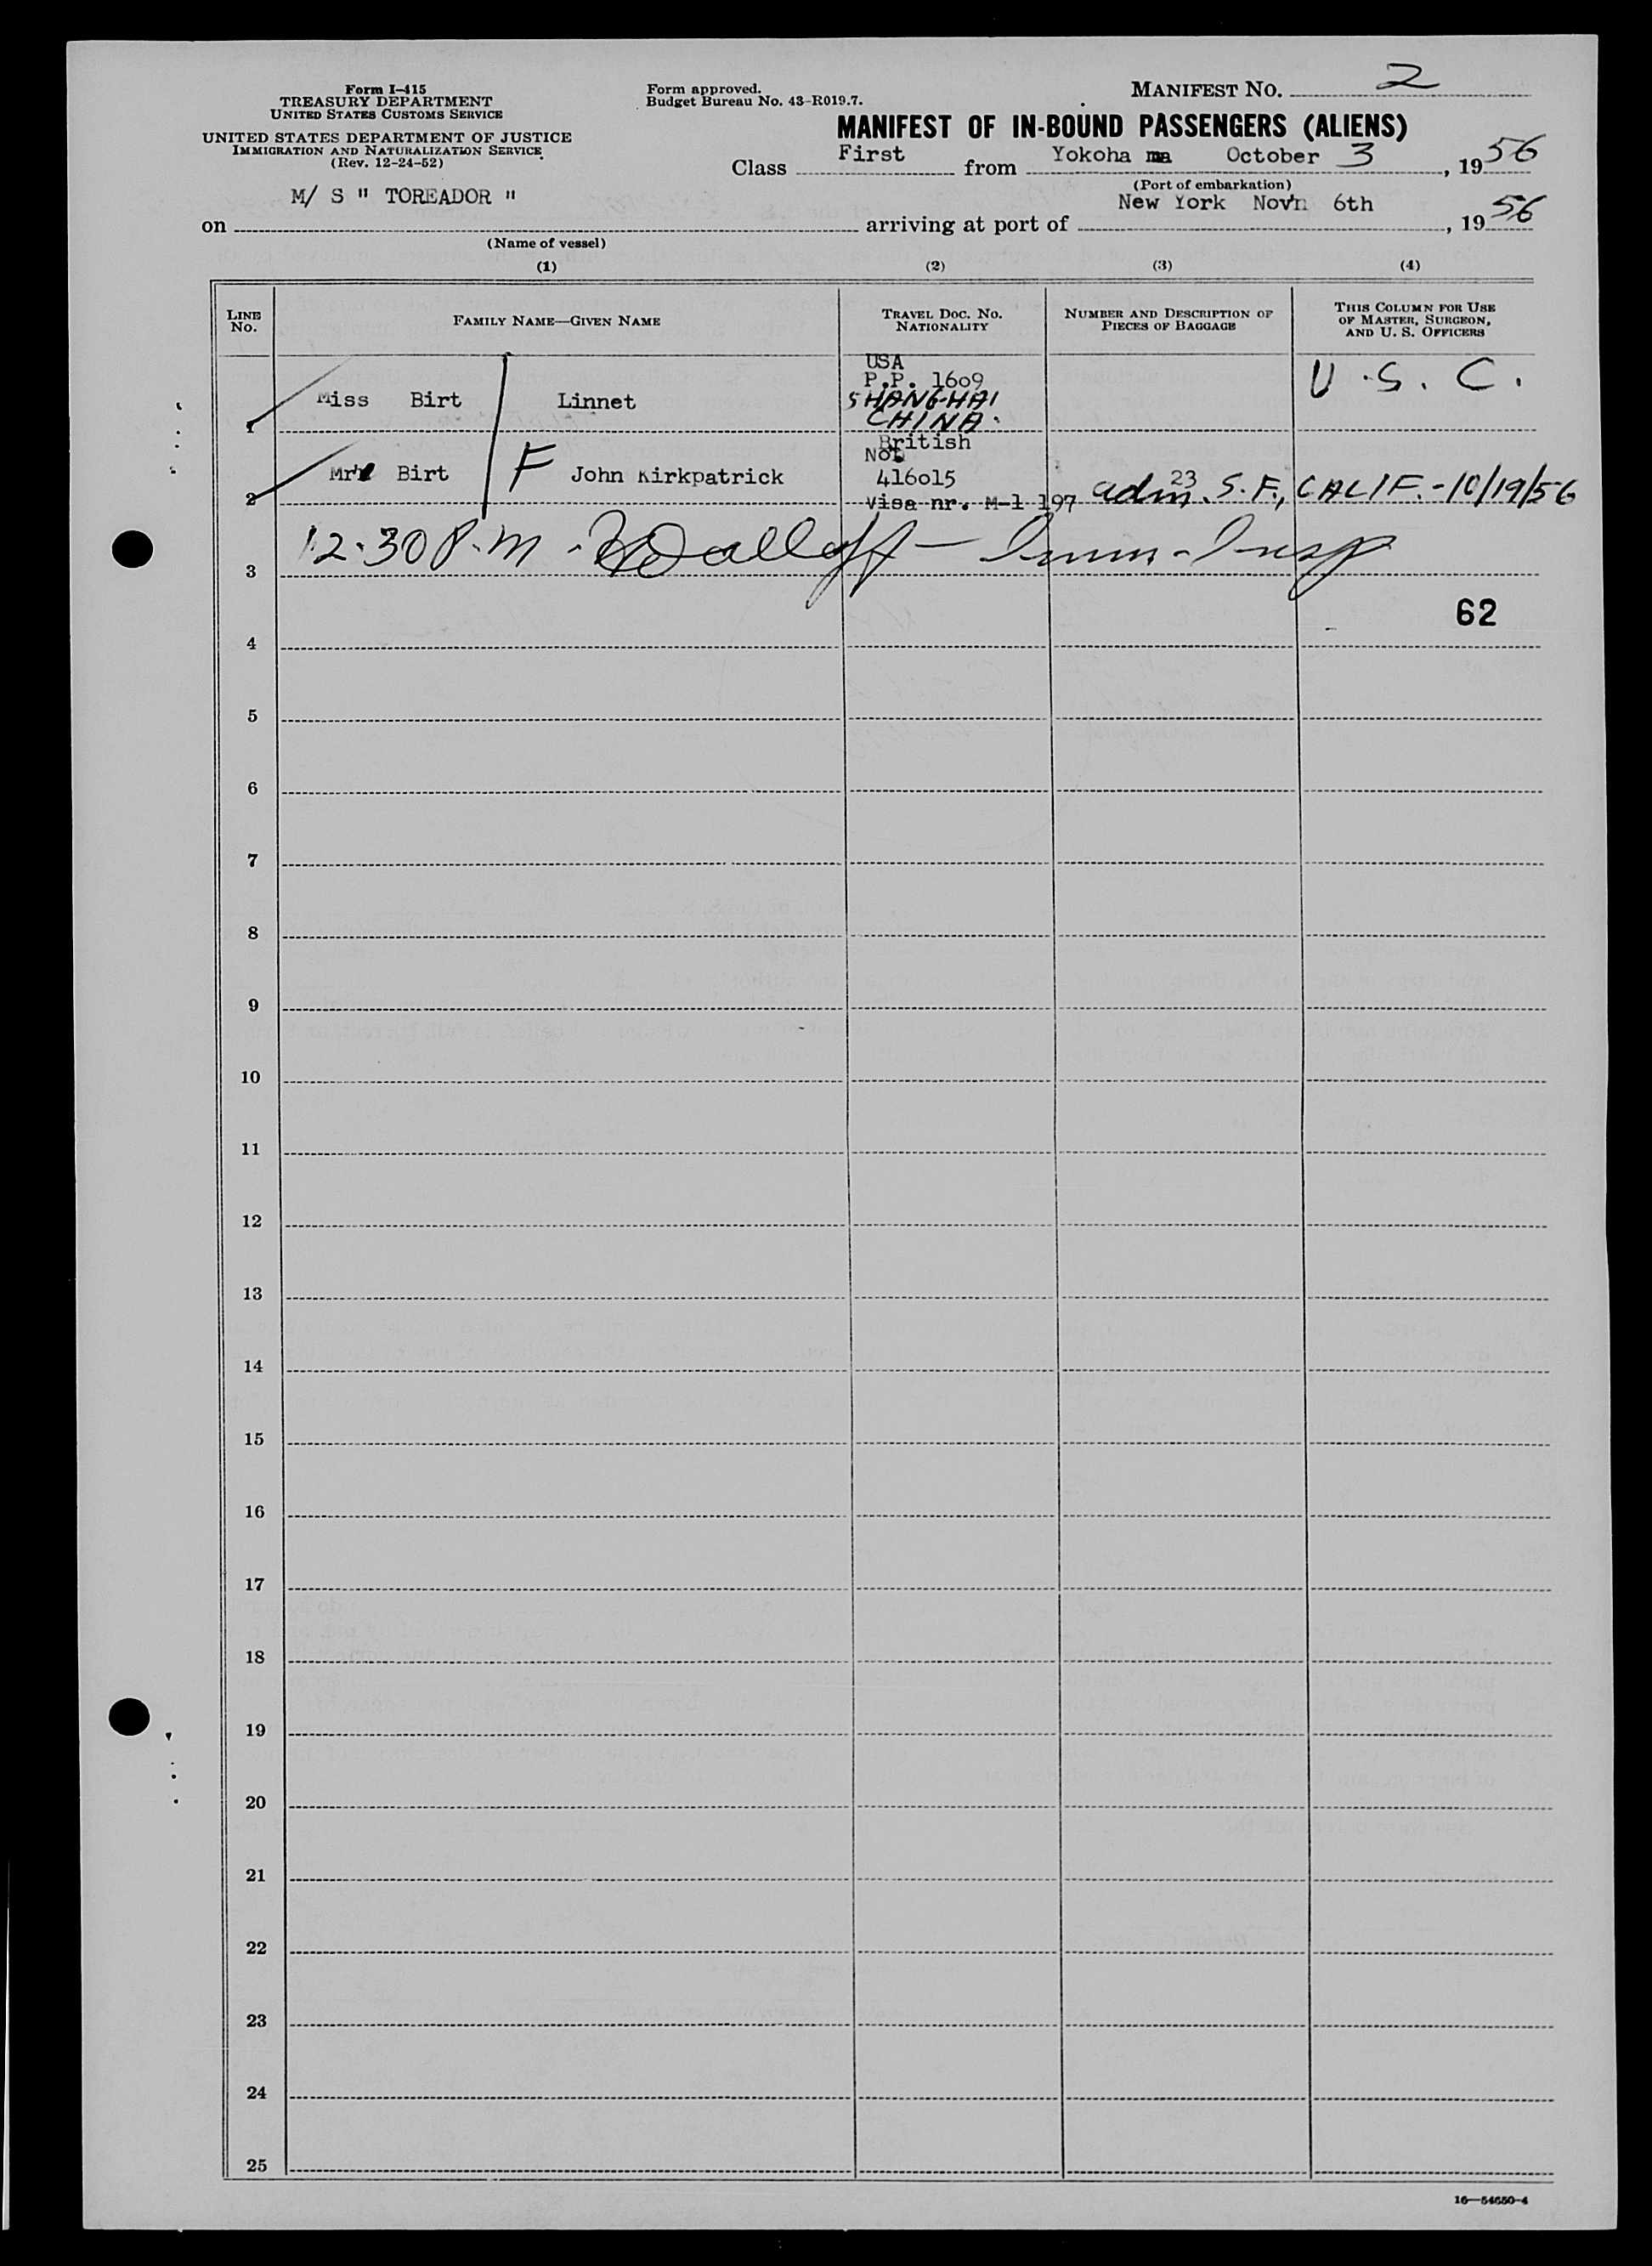 Form I-415
TREASURY DEPARTMENT
UNITED STATES CUSTOMS SERVICE
UNITED STATES DEPARTMENT OF JUSTICE
IMMIGRATION AND NATURALIZATION SERVICE
(Rev. 12-24-52)
Form approved.
Budget Bureau No. 43-R019.7.
MANIFEST NO. 2
MANIFEST OF IN-BOUND PASSENGERS (ALIENS)
Class First from Yokoha ma October 3, 1956
(Port of embarkation)
on M/ S " TOREADOR " arriving at port of New York Nov'n 6th, 1956
(Name of vessel)
(1) (2) (3) (4)
LINE No. FAMILY NAME—GIVEN NAME TRAVEL DOC. NO. NATIONALITY NUMBER AND DESCRIPTION OF PIECES OF BAGGAGE THIS COLUMN FOR USE OF MASTER, SURGEON, AND U. S. OFFICERS
1 Miss Birt Linnet USA P.P. 1609 SHANGHAI CHINA. U.S.C.
2 Mr Birt F John Kirkpatrick British No. 416015 Visa nr. M-1 197 23 adm. S.F., CALIF. - 10/19/56
3 12.30 P.m. - Imm-Insp
62
4
5
6
7
8
9
10
11
12
13
14
15
16
17
18
19
20
21
22
23
24
25
16—54650-4